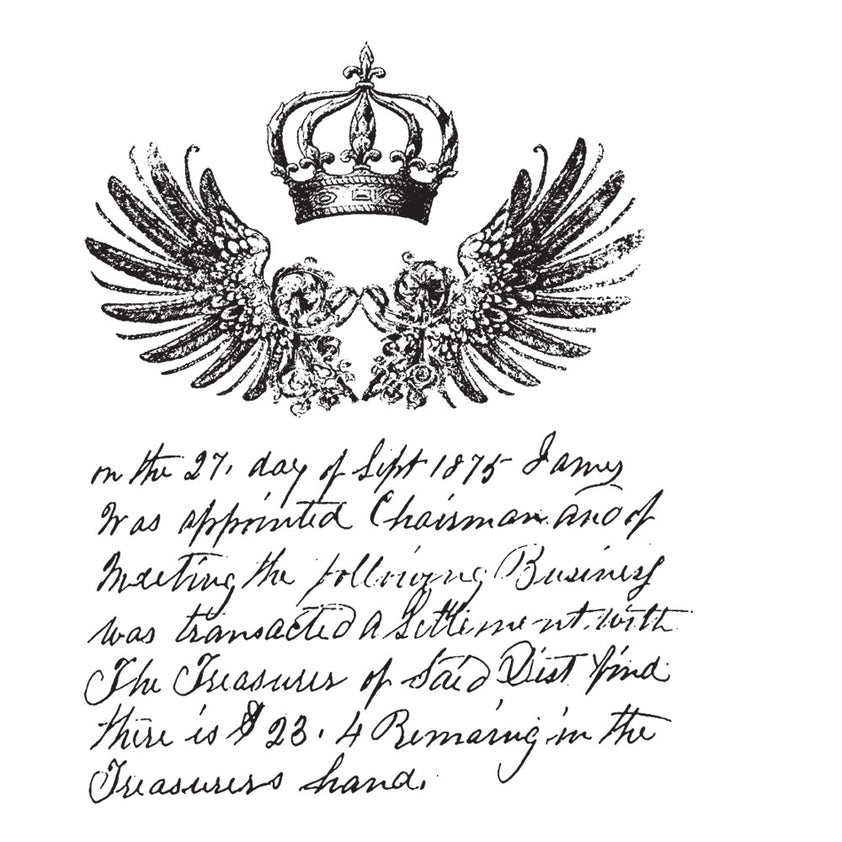 on the 27. day of Sept 1875 James
Was appointed Chairman and of
Meeting the following Business
was transacted A Settlement with
The Treasurer of Said Dist find
there is $ 23.4 Remaing in the
Treasurers hand.